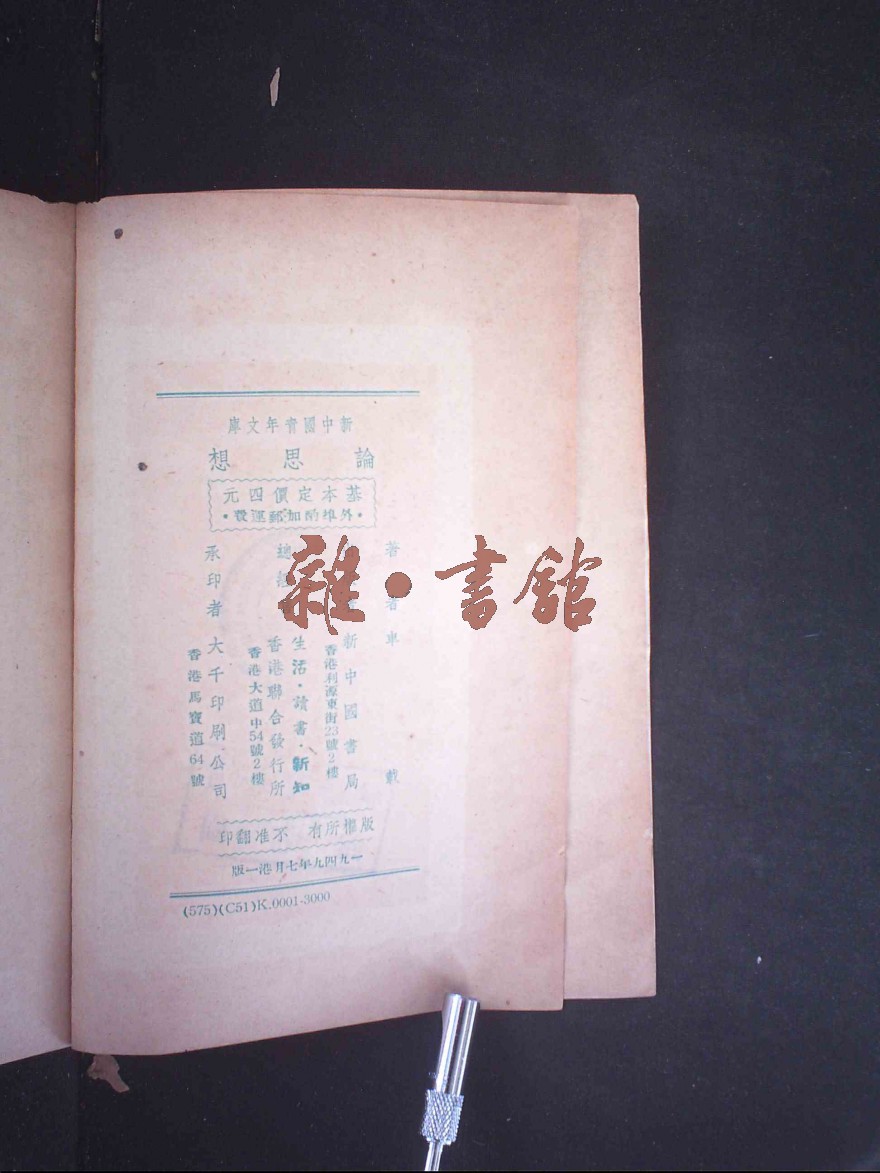 新中國青年文庫
論思想
基本定價四元
·外埠酌加郵運費·
著者 車載
新中國書局
香港利源東街23號2樓
總經
生活·讀書·新知
香港聯合發行所
香港大道中54號2樓
承印者 大千印刷公司
香港馬寶道64號
版權所有 不准翻印
一九四九年七月港一版
(575)(C51)K.0001-3000
雜·書館